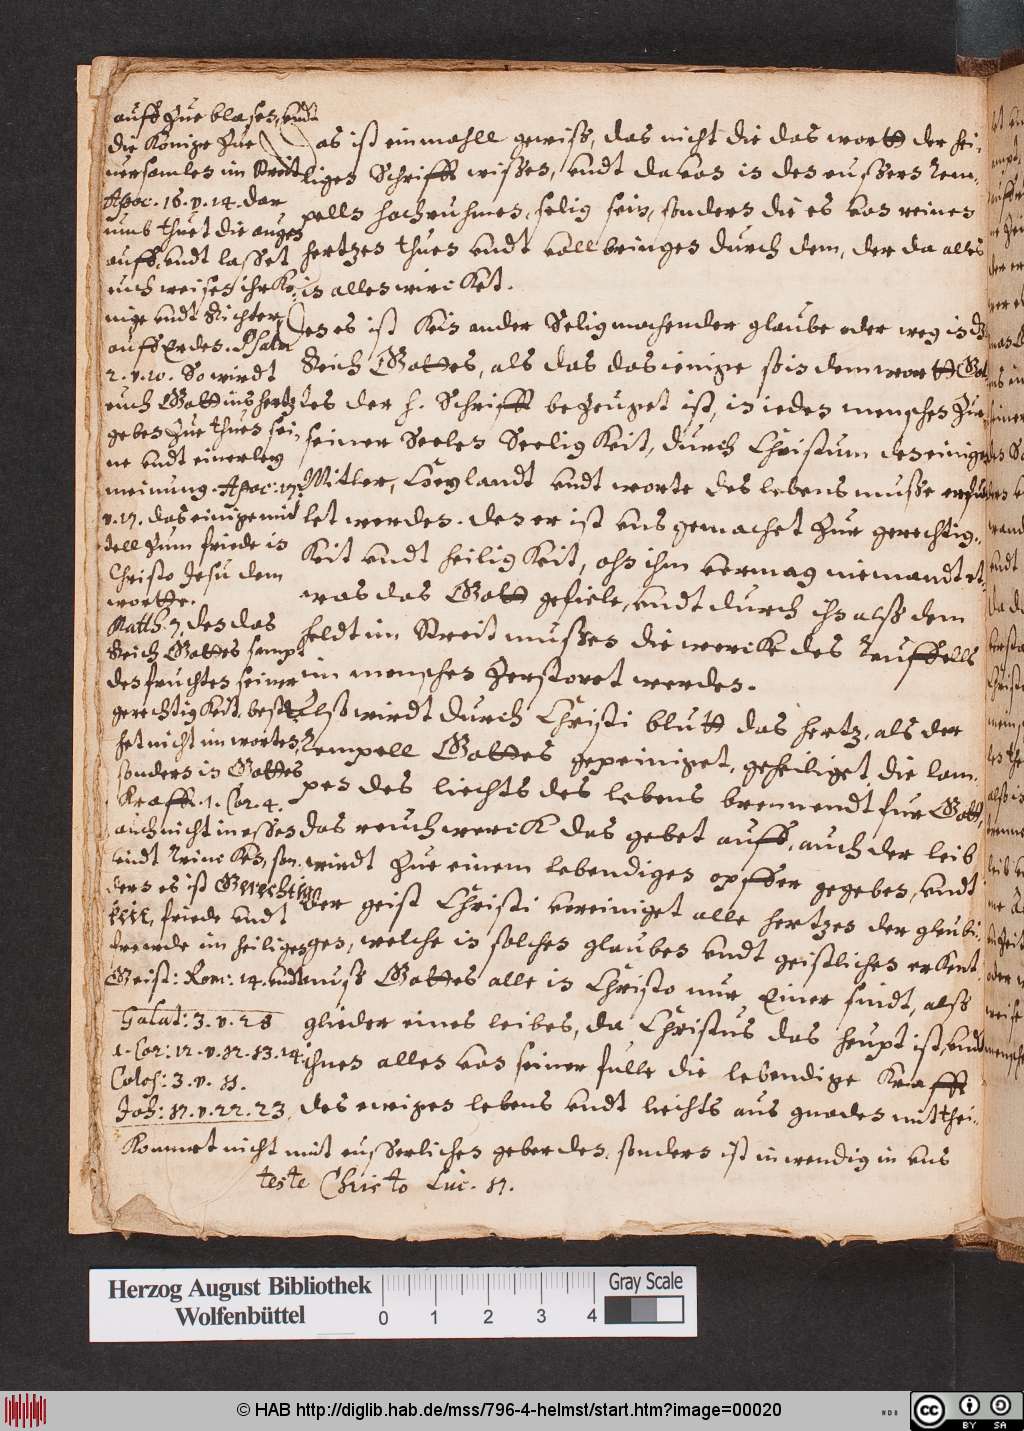 auff Zue blasen, undt
die Könige Zue
versamlen im Streit
Apoc. 16. v. 14. dar
umb thuet die augen
auff, undt lasset
euch weisen ihr Kö,
nige undt Richter
auff Erden. Psalm
2. v. 10. So wirdt
euch Gott ins hertz
geben Zue thuen sei,
ne undt einerley
meinung. Apoc: 17.
v. 17. das einige mit
tell Zum friede in
Christo Jesu dem
wortte.
Matth. 7, den das
Reich Gottes sampt
den fruchten seiner
gerechtigkeit, beste
het nicht im worten,
sondern in Gottes
Krafft. 1. Cor. 4.
auch nicht in essen
undt trincken, son,
dern es ist Gerechtig
keit, friede undt
freude im heiligen
Geist: Rom: 14. undt
Galat: 3. v. 28
1. Cor: 12. v. 12. 13. 14.
Colos: 3. v. 11.
Joh: 17. v. 22. 23.
Das ist einmahll gewiss, das nicht die das wortt der hei,
ligen Schrifft wissen, undt davon in den eussern Tem,
pelln hoch ruhmen, selig sein, sondern die es von reinen
hertzen thuen undt vollbringen durch dem, der da alles
in allen wircket.
Den es ist kein ander Seligmachender glaube oder weg in dz
Reich Gottes, als das das ienige so in dem wortt Got,
tes der h. Schrifft bezeuget ist, in ieden menschen Zur
seiner Seelen Seeligkeit, durch Christum den einigen
Mitler, Heylandt undt worte des lebens musse erful,
let werden. den er ist uns gemachet Zur gerechtig,
keit undt heiligkeit, ohn ihm vermag niemandt et,
was das Gott gefiele, undt durch ihn alss dem
heldt im Streit mussen die wercke des Teuffells
im menschen Zerstoret werden.
Alss wirdt durch Christi blutt das hertz, als der
Tempell Gottes gereiniget, geheiliget, die lam,
pen des liechts des lebens brennendt fur Gott,
das reuchwerck das gebet auff, auch der leib
wirdt Zue einem lebendigen opffer gegeben, undt
der geist Christi vereiniget alle hertzen der gleubi,
gen, welche in solchen glauben undt geistlichen erkent
nuss Gottes alle in Christo nur Einer sindt, alss
glieder eines leibes, da Christus das heupt ist, undt
ihnen allen von seiner fulle die lebendige Krafft
des ewigen lebens undt liechts aus gnaden mitthei,
Kommet nicht mit eusserlichen geberden, sondern ist inwendig in uns
teste Christo Luc. 17.
Herzog August Bibliothek
Wolfenbüttel
0 1 2 3 4
Gray Scale
© HAB http://diglib.hab.de/mss/796-4-helmst/start.htm?image=00020
cc BY SA